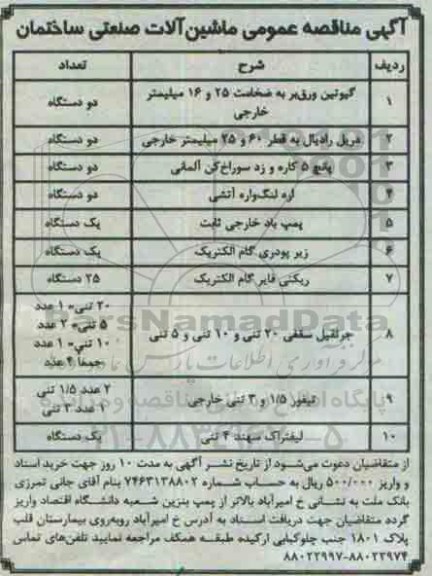 آگهی مناقصه عمومی ماشین‌آلات صنعتی ساختمان
ردیف شرح تعداد
۱ گیوتین ورق‌بر به ضخامت ۲۵ و ۱۶ میلیمتر خارجی دو دستگاه
۲ دریل رادیال به قطر ۶۰ و ۲۵ میلیمتر خارجی دو دستگاه
۳ پانچ ۵ کاره و زد سوراخ‌کن آلمانی دو دستگاه
۴ اره لنگ‌واره آتشی دو دستگاه
۵ پمپ باد خارجی ثابت یک دستگاه
۶ زیر پودری گام الکتریک یک دستگاه
۷ رکتی فایر گام الکتریک ۲۵ دستگاه
۸ جرثقیل سقفی ۲۰ تنی و ۱۰ تنی و ۵ تنی
۲۰ تنی= ۱ عدد
۵ تنی= ۲ عدد
۱۰ تنی= ۱ عدد
جمعاً ۴ عدد
۹ تیفور ۱/۵ و ۳ تنی خارجی
۲ عدد ۱/۵ تنی
۱ عدد ۳ تنی
۱۰ لیفتراک سهند ۴ تنی یک دستگاه
از متقاضیان دعوت می‌شود از تاریخ نشر آگهی به مدت ۱۰ روز جهت خرید اسناد
و واریز ۵۰۰/۰۰۰ ریال به حساب شماره ۷۴۶۳۱۳۸۸۰۲ بنام آقای جانی تمرزی
بانک ملت به نشانی خ امیرآباد بالاتر از پمپ بنزین شعبه دانشگاه اقتصاد واریز
گردد متقاضیان جهت دریافت اسناد به آدرس خ امیرآباد روبه‌روی بیمارستان قلب
پلاک ۱۸۰۱ جنب چلوکبابی ارکیده طبقه همکف مراجعه نمایید تلفن‌های تماس
۸۸۰۲۲۹۷۴-۸۸۰۲۲۹۹۷
ParsNamadData
۰۲۱-۸۸۳۴۹۶۷۰-۵